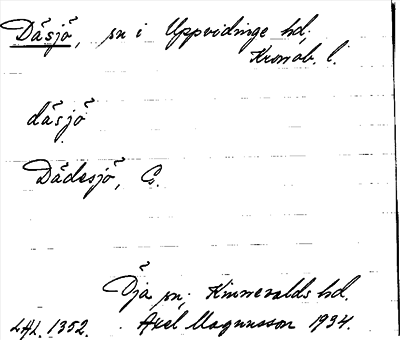 Däsjö, sn i Uppvidinge hd,
Kronob. l.
däsjö
Dädesjö, G.
Öja sn, Kinnevalds hd.
LAL. 1352. Axel Magnusson 1934.